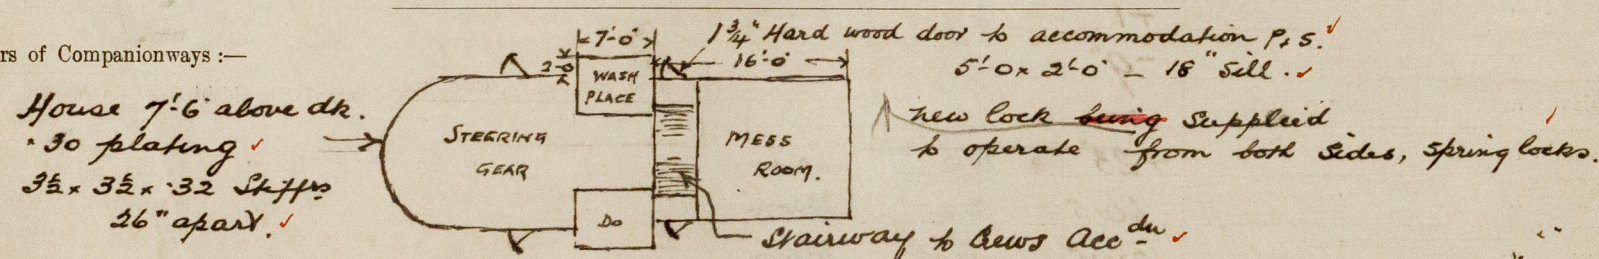 rs of Companionways :—
House 7'-6" above dk.
·30 plating
3½ x 3½ x ·32 Stiffrs
26" apart.
7'-0"
2'-0
WASH
PLACE
STEERING
GEAR
Do
16'-0"
MESS
ROOM.
1¾" Hard wood door to accommodation P+S.
5'-0 x 2'-0 — 18" Sill.
new lock being Supplied
to operate from both sides, spring locks.
Stairway to Crews Accdn